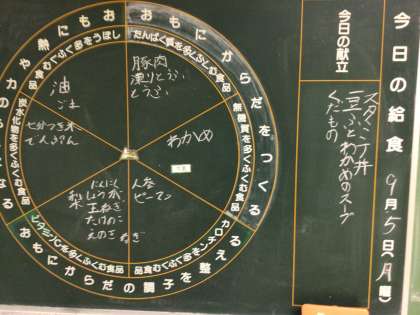 今日の給食 9月5日(月)曜
今日の献立
スタミナ丼
豆ふとわかめのスープ
くだもの
おもにからだをつくる
おもにからだの調子を整える
たんぱく質を多くふくむ食品
豚肉
凍りとうふ
とうふ
無機質を多くふくむ食品
わかめ
カロチンを多くふくむ食品
人参
ピーマン
ビタミンCを多くふくむ食品
にんにく
しょうが
玉ねぎ
たけのこ
えのき
ねぎ
梨
炭水化物を多くふくむ食品
七分つき米
でんぷん
しぼうを多くふくむ食品
油
ごま